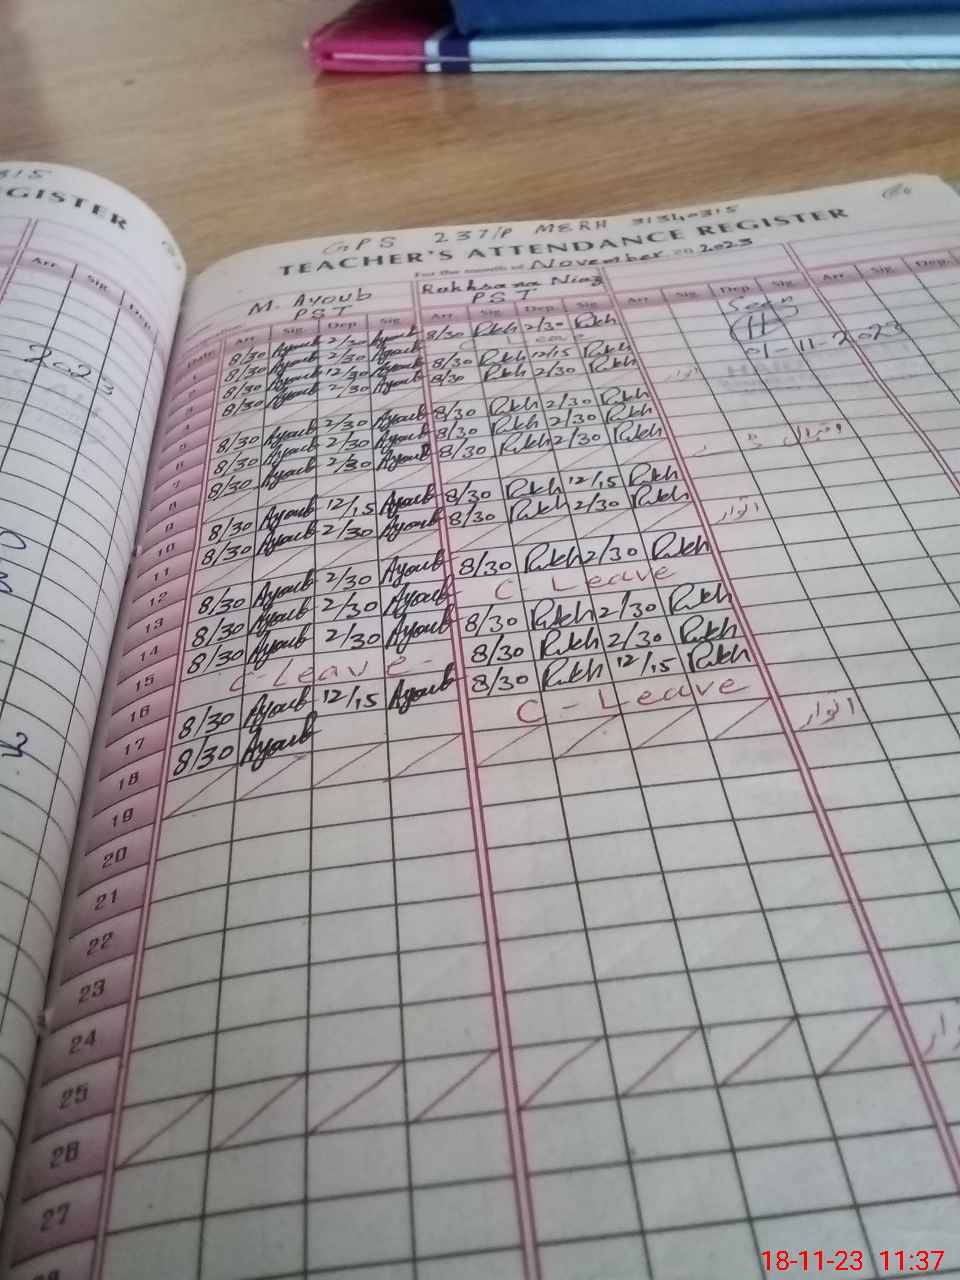 315
EGISTER
Arr. Sig. Dep.
- 2023
GPS 237/P MERH 31340315
TEACHER'S ATTENDANCE REGISTER
For the month of November 2023
M. Ayoub Rukhsana Niaz
PST PST
Date Arr Sig. Dep Sig. Arr Sig. Dep. Sig. Arr Sig. Dep. Sig. Arr Sig. Dep.
Seen
01-11-2023
1 8/30 Ayoub 2/30 Ayoub 8/30 Rukh 2/30 Rukh
2 8/30 Ayoub 2/30 Ayoub C Leave
3 8/30 Ayoub 12/30 Ayoub 8/30 Rukh 12/15 Rukh
4 8/30 Ayoub 2/30 Ayoub 8/30 Rukh 2/30 Rukh
5 اتوار
6 8/30 Ayoub 2/30 Ayoub 8/30 Rukh 2/30 Rukh
7 8/30 Ayoub 2/30 Ayoub 8/30 Rukh 2/30 Rukh
8 8/30 Ayoub 2/30 Ayoub 8/30 Rukh 2/30 Rukh
9 اقبال
10 8/30 Ayoub 12/15 Ayoub 8/30 Rukh 12/15 Rukh
11 8/30 Ayoub 2/30 Ayoub 8/30 Rukh 2/30 Rukh
12 اتوار
13 8/30 Ayoub 2/30 Ayoub 8/30 Rukh 2/30 Rukh
14 8/30 Ayoub 2/30 Ayoub C Leave
15 8/30 Ayoub 2/30 Ayoub 8/30 Rukh 2/30 Rukh
16 C-Leave- 8/30 Rukh 2/30 Rukh
17 8/30 Ayoub 12/15 Ayoub 8/30 Rukh 12/15 Rukh
18 8/30 Ayoub C - Leave
19 اتوار
20
21
22
23
24
25
26
27
18-11-23 11:37